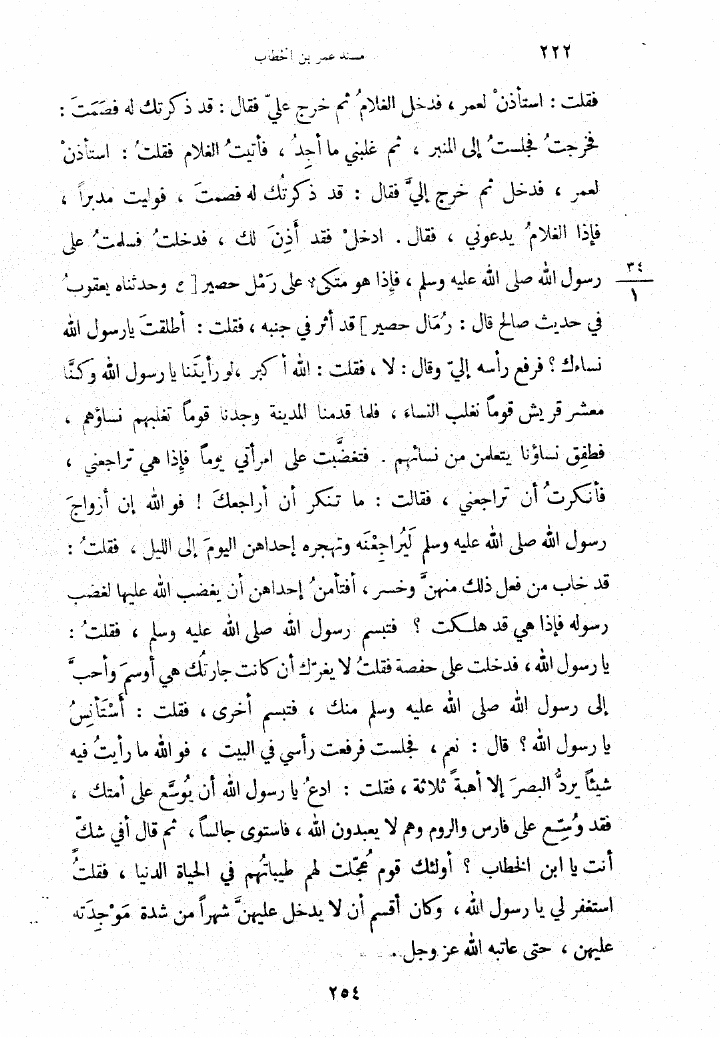 ٢٢٢ مسند عمر بن الخطاب
فقلت : استأذنْ لعمر ، فدخل الغلامُ ثم خرج عليّ فقال : قد ذكرتك له فصَمَتَ :
فخرجتُ فجلستُ إلى المنبر ، ثم غلبني ما أجِدُ ، فأتيتُ الغلام فقلتُ : استأذنْ
لعمر ، فدخل ثم خرج إليَّ فقال : قد ذكرتُك له فصمتَ ، فوليت مدبراً ،
فإذا الغلامُ يدعوني ، فقال . ادخلْ فقد أَذِنَ لك ، فدخلتُ فسلمتُ على
رسول الله صلى الله عليه وسلم ، فإذا هو متكئ على رَمْل حصير [ ح وحدثناه يعقوبُ
٣٤
١
في حديث صالح قال : رُمَال حصير ] قد أثر في جنبه ، فقلت : أطلقتَ يارسول الله
نساءك ؟ فرفع رأسه إليّ وقال : لا ، فقلت : الله أكبر ، لو رأيتَنا يا رسول الله وكنَّا
معشر قريش قوماً نغلب النساء ، فلما قدمنا المدينة وجدنا قوماً تغلبهم نساؤهم ،
فطفِق نساؤنا يتعلمن من نسائهم . فتغضَّبت على امرأتي يوماً فإذا هي تراجعني ،
فأنكرتُ أن تراجعني ، فقالت : ما تنكر أن أراجعكَ ! فو الله إن أزواجَ
رسول الله صلى الله عليه وسلم لَيُراجِعْنَه وتهجره إحداهن اليومَ إلى الليل ، فقلتُ :
قد خاب من فعل ذلك منهنَّ وخسر ، أفتأمنُ إحداهن أن يغضب الله عليها لغضب
رسوله فإذا هي قد هلكت ؟ فتبسم رسول الله صلى الله عليه وسلم ، فقلتُ :
يا رسول الله ، فدخلت على حفصة فقلتُ لا يغرّك أن كانت جارتُك هي أوسمَ وأحبَّ
إلى رسول الله صلى الله عليه وسلم منك ، فتبسم أخرى ، فقلت : أَسْتَأنِسُ
يا رسول الله ؟ قال : نعم ، فجلست فرفعت رأسي في البيت ، فو الله ما رأيتُ فيه
شيئاً يردُّ البصرَ إلا أهبةً ثلاثة ، فقلت : ادعُ يا رسول الله أن يُوسَّع على أمتك ،
فقد وُسِّع على فارس والروم وهم لا يعبدون الله ، فاستوى جالساً ، ثم قال أفي شكٍّ
أنت يا ابن الخطاب ؟ أولئك قوم عُجِّلت لهم طيباتُهم في الحياة الدنيا ، فقلتُ
استغفر لي يا رسول الله ، وكان أقسم أن لا يدخل عليهنَّ شهراً من شدة مَوْجِدَته
عليهن ، حتى عاتبه الله عز وجل .
٢٥٤